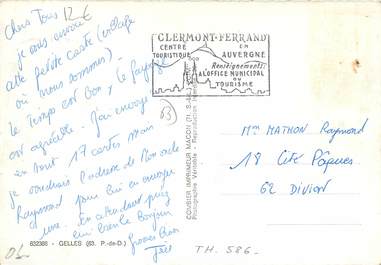 Chers Tous 12 €
je vous envoie
cette petite carte (village
où nous sommes)
le temps est bon, le paysage
est agréable. J'ai envoyé
en tout 17 cartes mais
je voudrais l'adresse de Mon oncle
Raymond pour lui en envoyer
une. En attendant
lui bien le Bonjour
Grosses Bises
CLERMONT-FERRAND
CENTRE
TOURISTIQUE
EN
AUVERGNE
Renseignements:
A L'OFFICE MUNICIPAL
DU
TOURISME
63
COMBIER IMPRIMEUR MACON (71. S.-&-L.)
Photographie Véritable - Reproduction
Mme MATHON Raymond
18 Cité Pâques
62 DIVION
832366 - GELLES (63. P.-de-D.)
TH. 586.